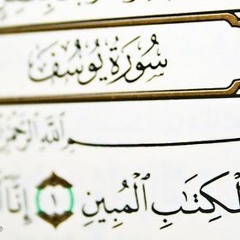 سُورَةُ يُوسُفَ
ٱللَّهِ ٱلرَّحْمَٰ
ٱلْكِتَٰبِ ٱلْمُبِينِ ١ إِنَّآ